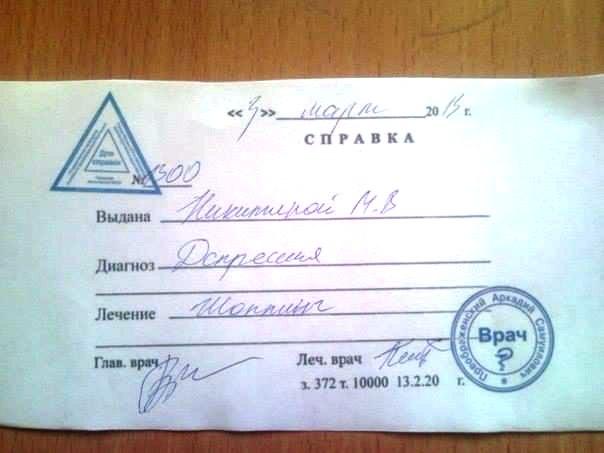 «3» март 2013 г.
СПРАВКА
Для справок
№ 1300
Выдана Никитиной М.В
Диагноз Депрессия
Лечение Шоппинг
Глав. врач Леч. врач
з. 372 т. 10000 13.2.20 г.
Преображенский Аркадий Самуилович
Врач